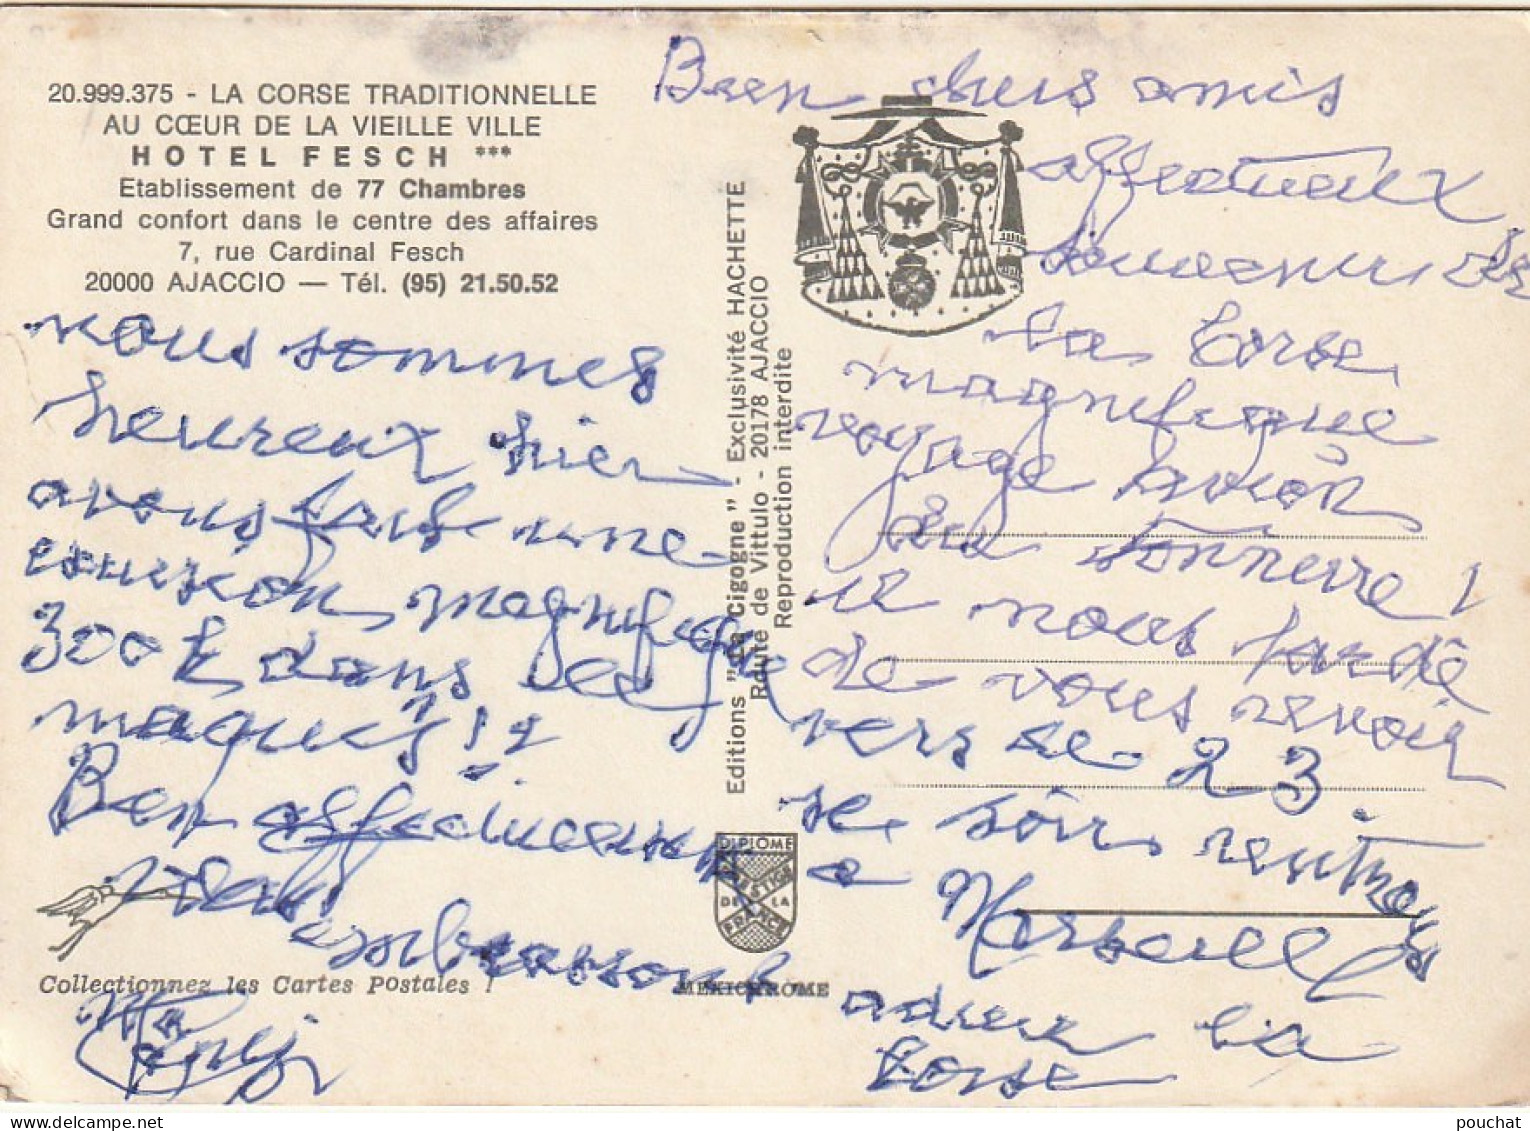 20.999.375 - LA CORSE TRADITIONNELLE
AU CŒUR DE LA VIEILLE VILLE
HOTEL FESCH ***
Etablissement de 77 Chambres
Grand confort dans le centre des affaires
7, rue Cardinal Fesch
20000 AJACCIO — Tél. (95) 21.50.52
Bien chers amis
affectueux
souvenir de
la Corse
magnifique
voyage avion
du tonnerre !
il nous tarde
de vous revoir
vers le 23.
ce soir rentrons
a Marseille
adieu la
Corse
nous sommes
heureux hier
avons fait une
excursion magnifique
300 K dans les
maquis !!
Bien affectueusement
vous
embrassons
Editions "La Cigogne" - Exclusivité HACHETTE
Route de Vittulo - 20178 AJACCIO
Reproduction interdite
DIPLOME
PRESTIGE
DE LA
FRANCE
MEXICHROME
Collectionnez les Cartes Postales !
delcampe.net
pouchat